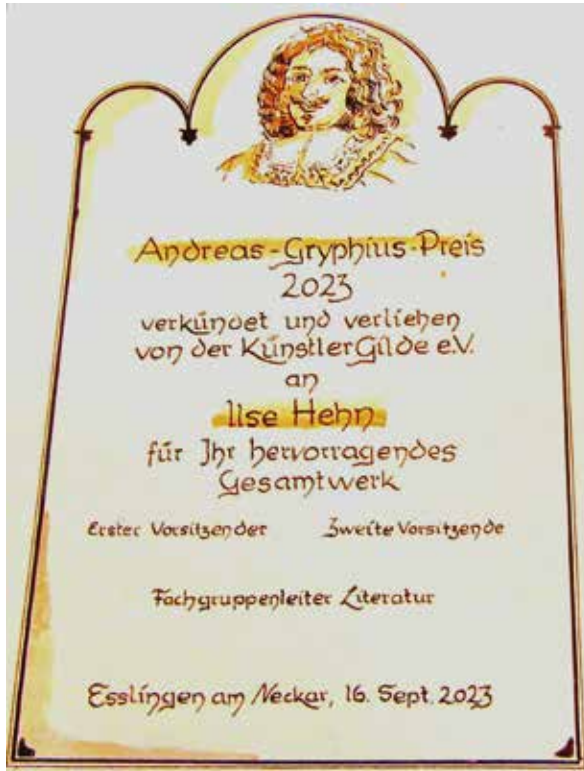 Andreas-Gryphius-Preis
2023
verkündet und verliehen
von der KünstlerGilde e.V.
an
Ilse Hehn
für Ihr hervorragendes
Gesamtwerk
Erster Vorsitzender Zweite Vorsitzende
Fachgruppenleiter Literatur
Esslingen am Neckar, 16. Sept. 2023